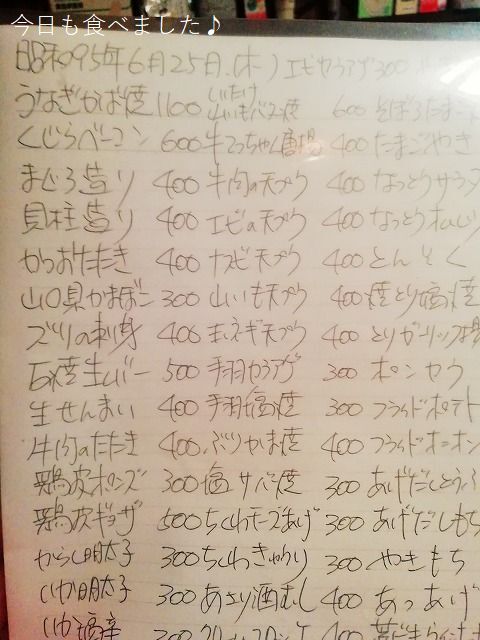 今日も食べました♪
昭和95年6月25日(木) エビカラアゲ300
うなぎかば焼 1100 しいたけ 600 そぼろたま
くじらベーコン 600 牛てっちゃん 400 たまごやき
まぐろ造り 400 牛肉の天プラ 400 なっとうサラダ
貝柱造り 400 エビの天プラ 400 なっとうオムレツ
かつおたたき 400 ナスビ天プラ 400 とんそく
山口県かまぼこ 300 山いも天プラ 400 焼とり塩焼
ズリの刺身 400 玉ネギ天プラ 400 とりガーリック揚
石焼生レバー 500 手羽カラアゲ 300 ポンセウ
生せんまい 400 手羽塩焼 300 フライドポテト
牛肉のたたき 400 ぶりかま焼 400 フライドオニオン
鶏皮ポンズ 300 塩サバ焼 300 あげだしとうふ
鶏皮ギョーザ 500 ちくわチーズあげ 300 あげだしもち
からし明太子 300 ちくわきゅうり 300 やきもち
いか明太子 300 あさり酒むし 400 あつあげ
いか塩辛 300 クリームコロッケ 400